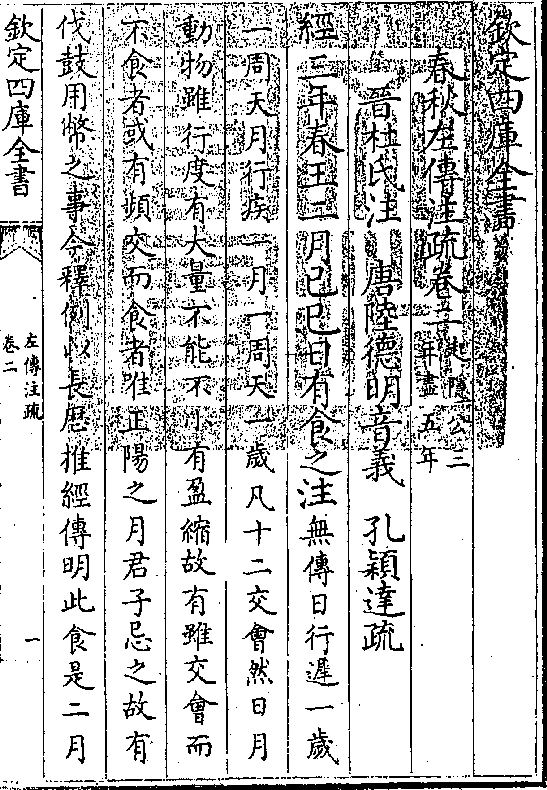 欽定四庫全書
春秋左傳注疏卷二起隱公三年盡五年
晉杜氏注 唐陸德明音義 孔穎達疏
經三年春王二月己巳日有食之注無傳日行遲一歲
一周天月行疾一月一周天一歲凡十二交會然日月
動物雖行度有大量不能不小有盈縮故有雖交會而
不食者或有頻交而食者唯正陽之月君子忌之故有
伐鼓用幣之事今釋例以長厯推經傳明此食是二月
欽定四庫全書
左傳注疏
卷二
一